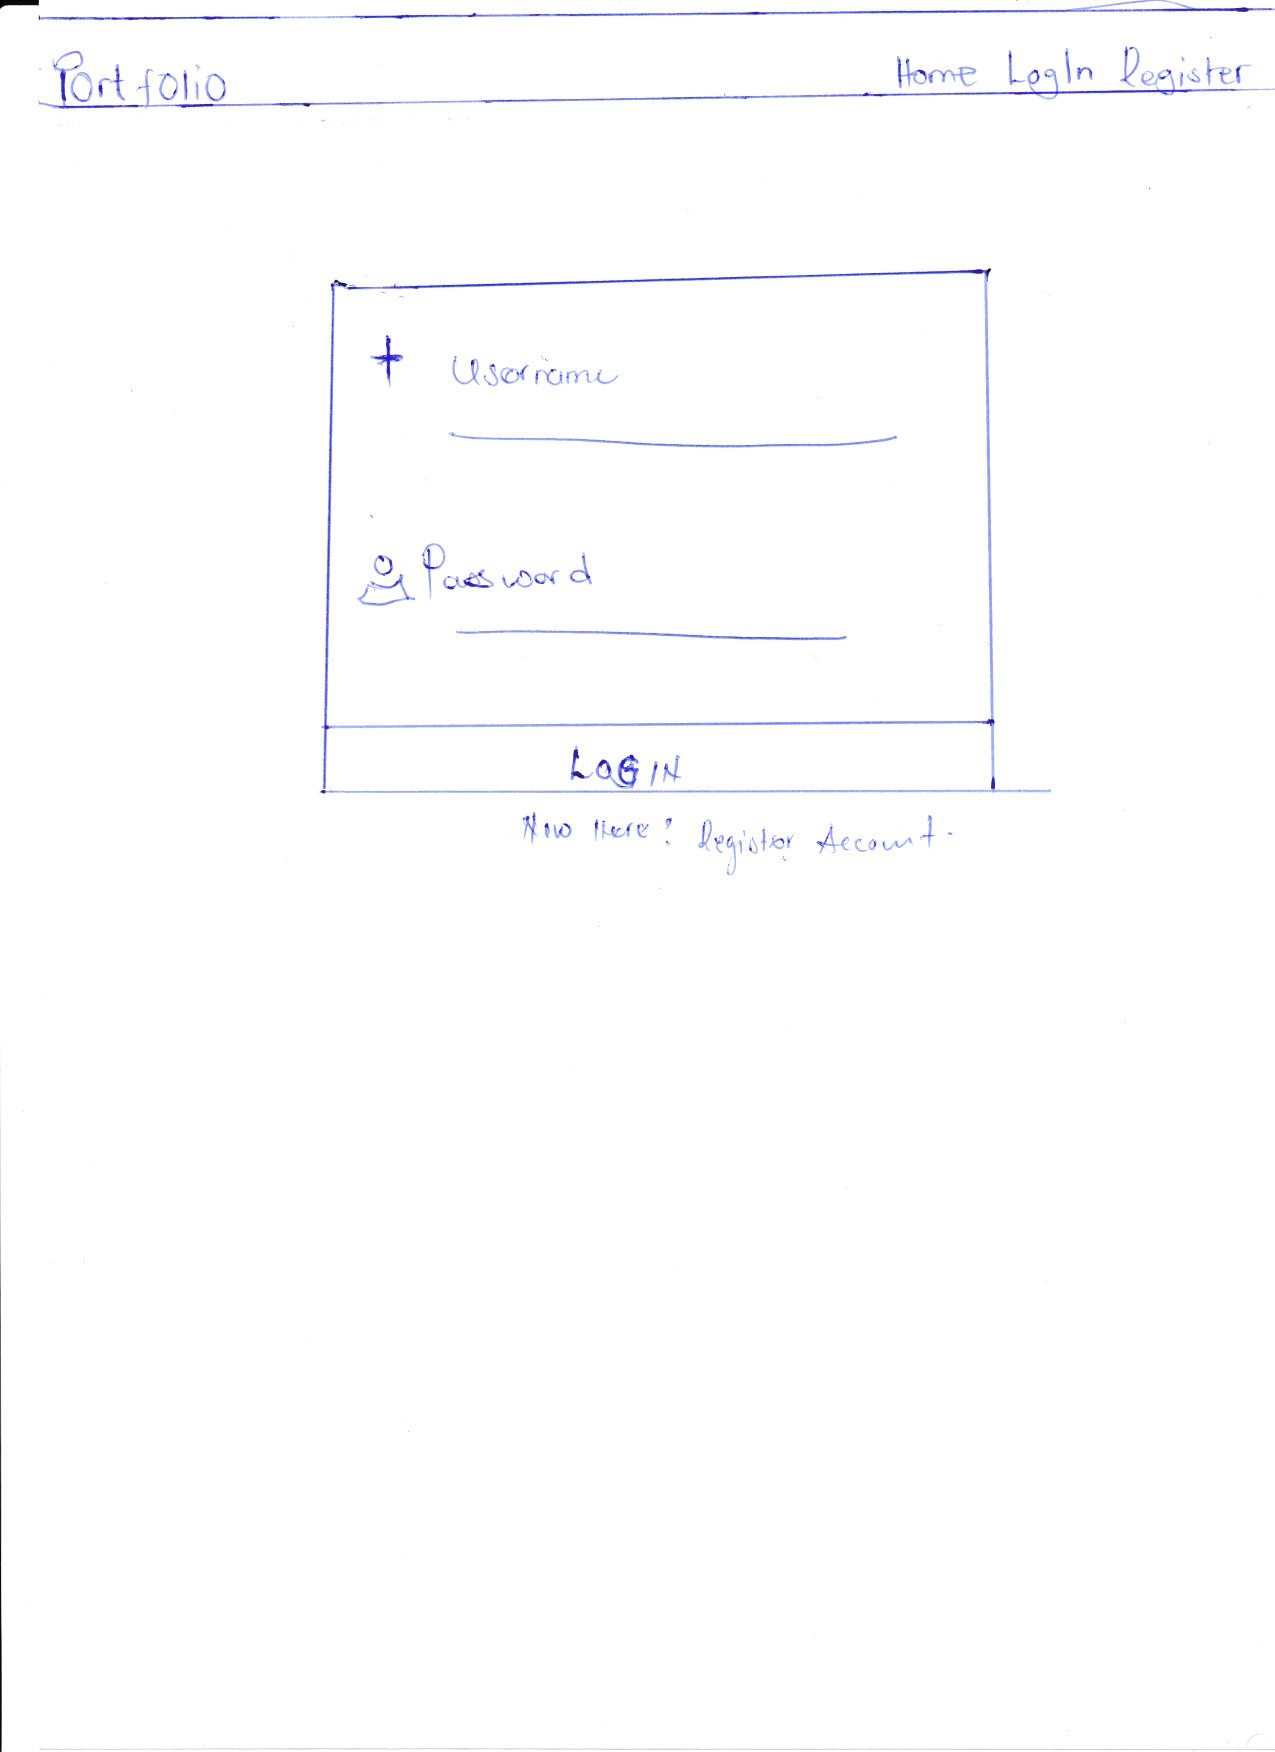 Portfolio
Home LogIn Register
Username
Password
LOGIN
New Here? Register Account.